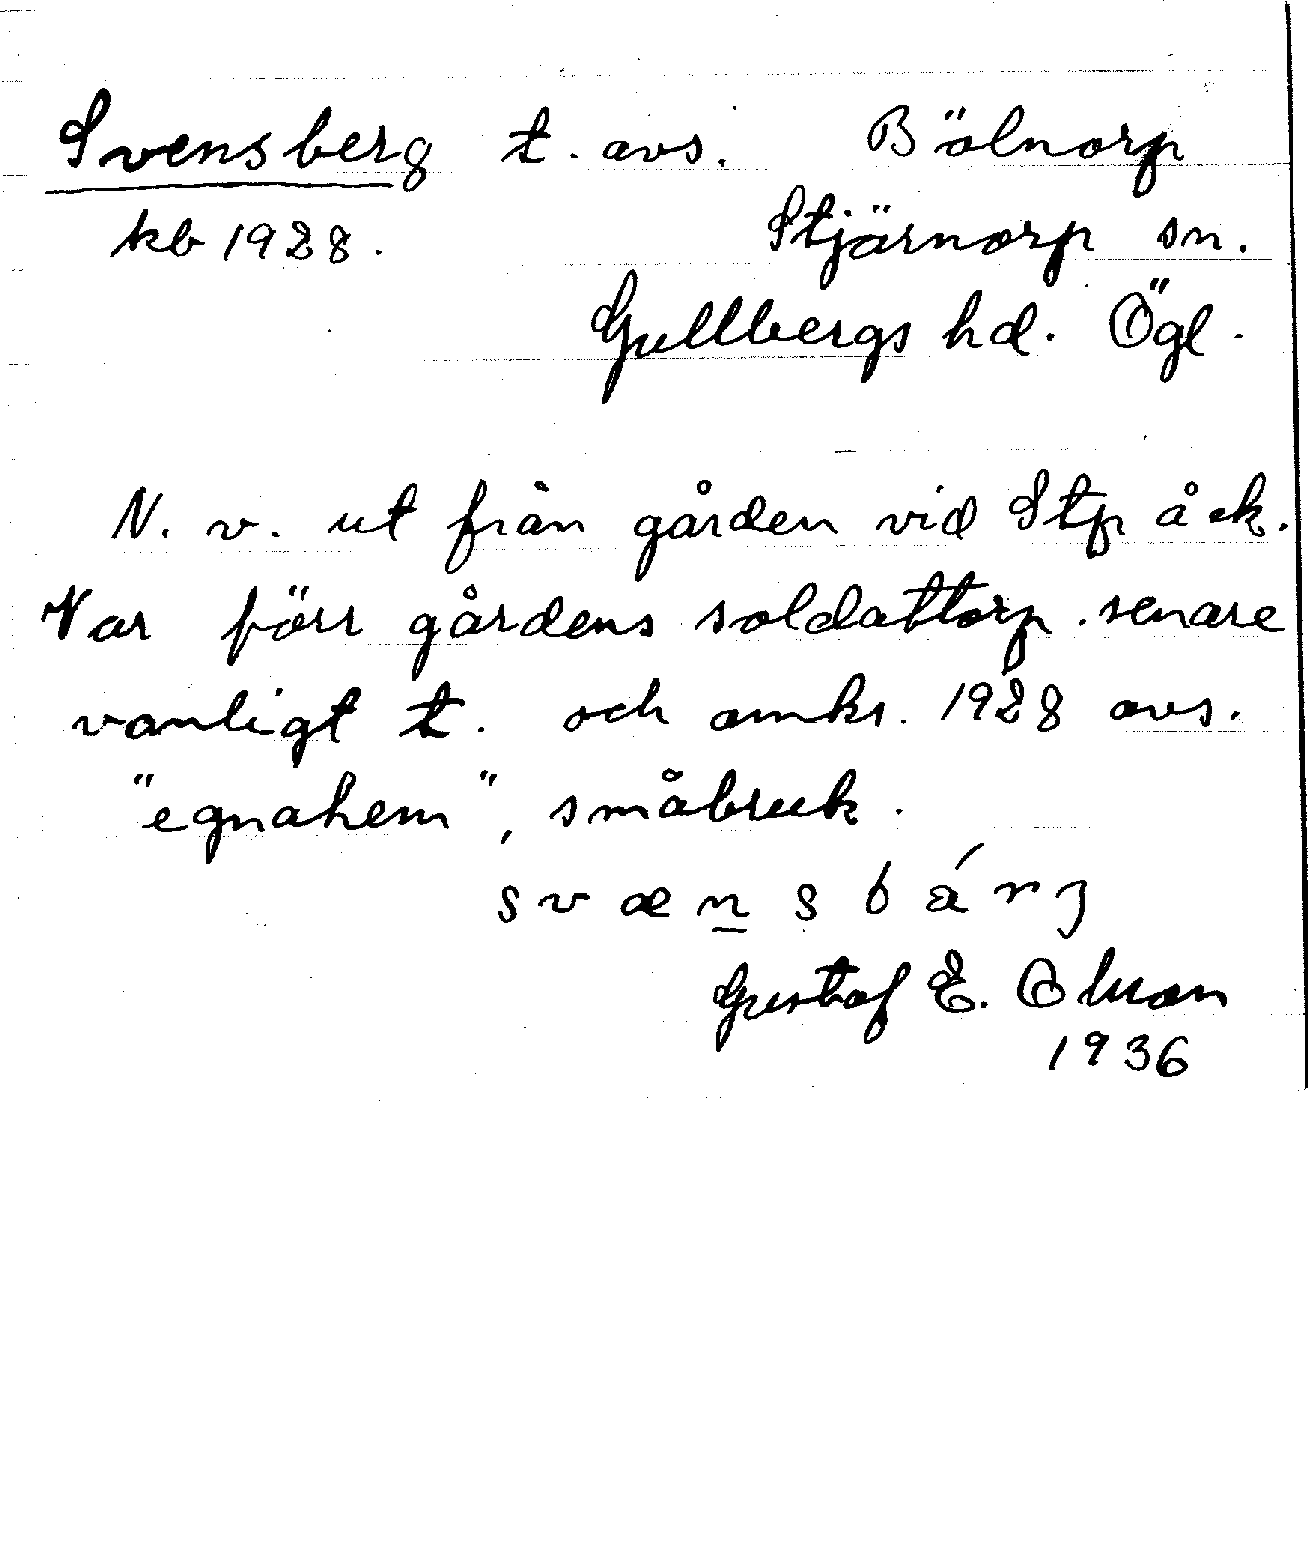 Svensberg t. avs. Bölnorp
kb 1928. Stjärnorp sn.
Gullbergs hd. Ögl.
N. v. ut från gården vid Stp åek.
Var förr gårdens soldattorp. senare
vanligt t. och omkr. 1928 avs.
"egnahem", småbruk.
svænsbárj
Gustaf E. Olsson
1936